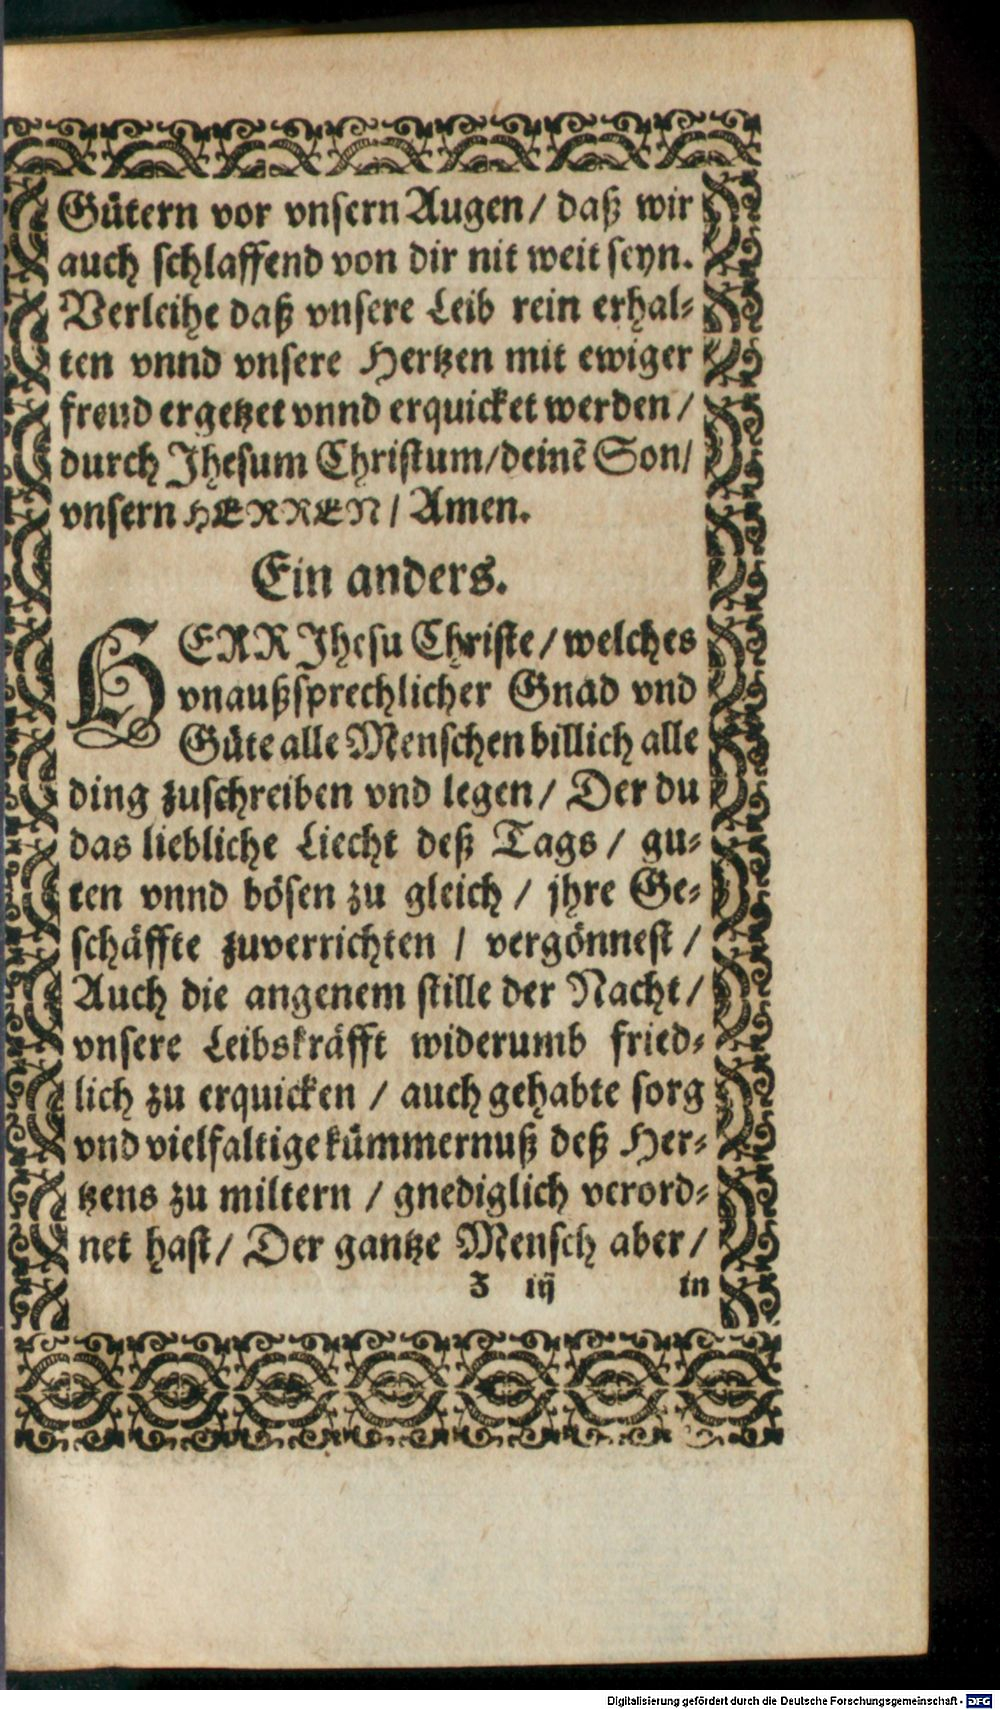 Gütern vor vnsern Augen / daß wir
auch schlaffend von dir nit weit seyn.
Verleihe daß vnsere Leib rein erhal-
ten vnnd vnsere Hertzen mit ewiger
freud ergetzet vnnd erquicket werden /
durch Jhesum Christum / deinẽ Son /
vnsern HERREN / Amen.
Ein anders.
HERR Jhesu Christe / welches
vnaußsprechlicher Gnad vnd
Güte alle Menschen billich alle
ding zuschreiben vnd legen / Der du
das liebliche Liecht deß Tags / gu-
ten vnnd bösen zu gleich / jhre Ge-
schäffte zuverrichten / vergönnest /
Auch die angenem stille der Nacht /
vnsere Leibskräfft widerumb fried-
lich zu erquicken / auch gehabte sorg
vnd vielfaltige kümmernuß deß Her-
tzens zu miltern / gnediglich verord-
net hast / Der gantze Mensch aber /
Z iij in
Digitalisierung gefördert durch die Deutsche Forschungsgemeinschaft - DFG